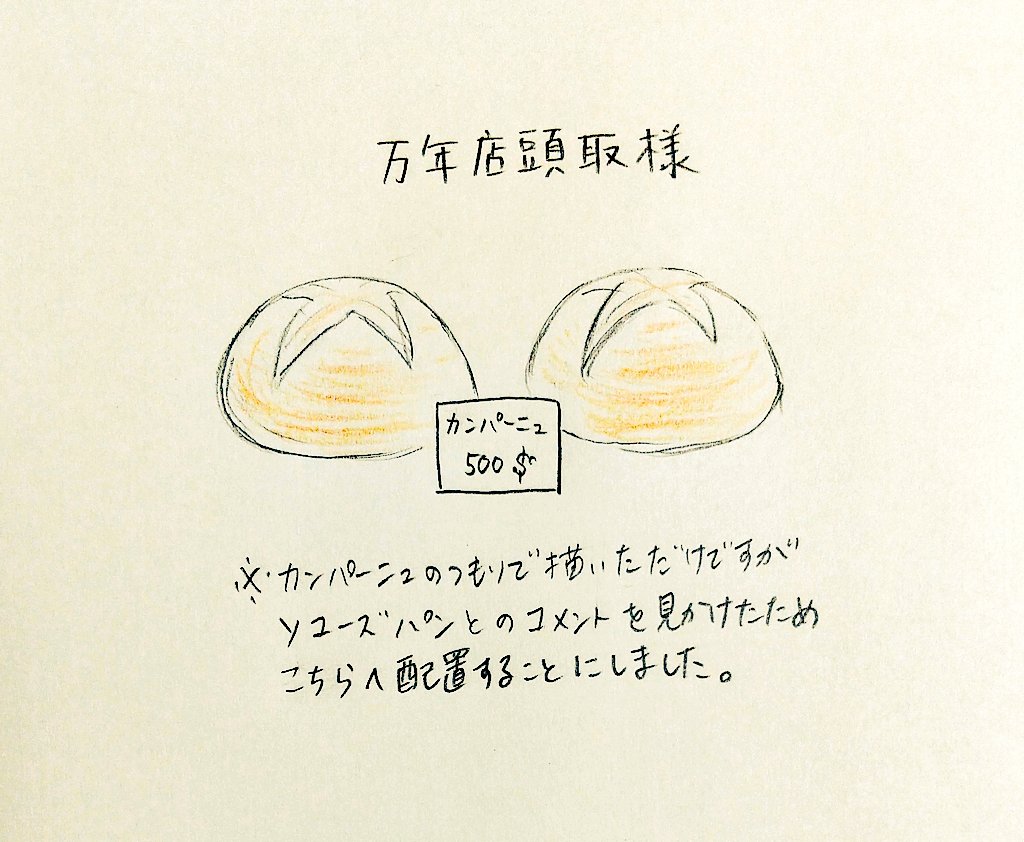 万年店頭取様
カンパーニュ
500$
※カンパーニュのつもりで描いただけですが
ソユーズパンとのコメントを見かけたため
こちらへ配置することにしました。